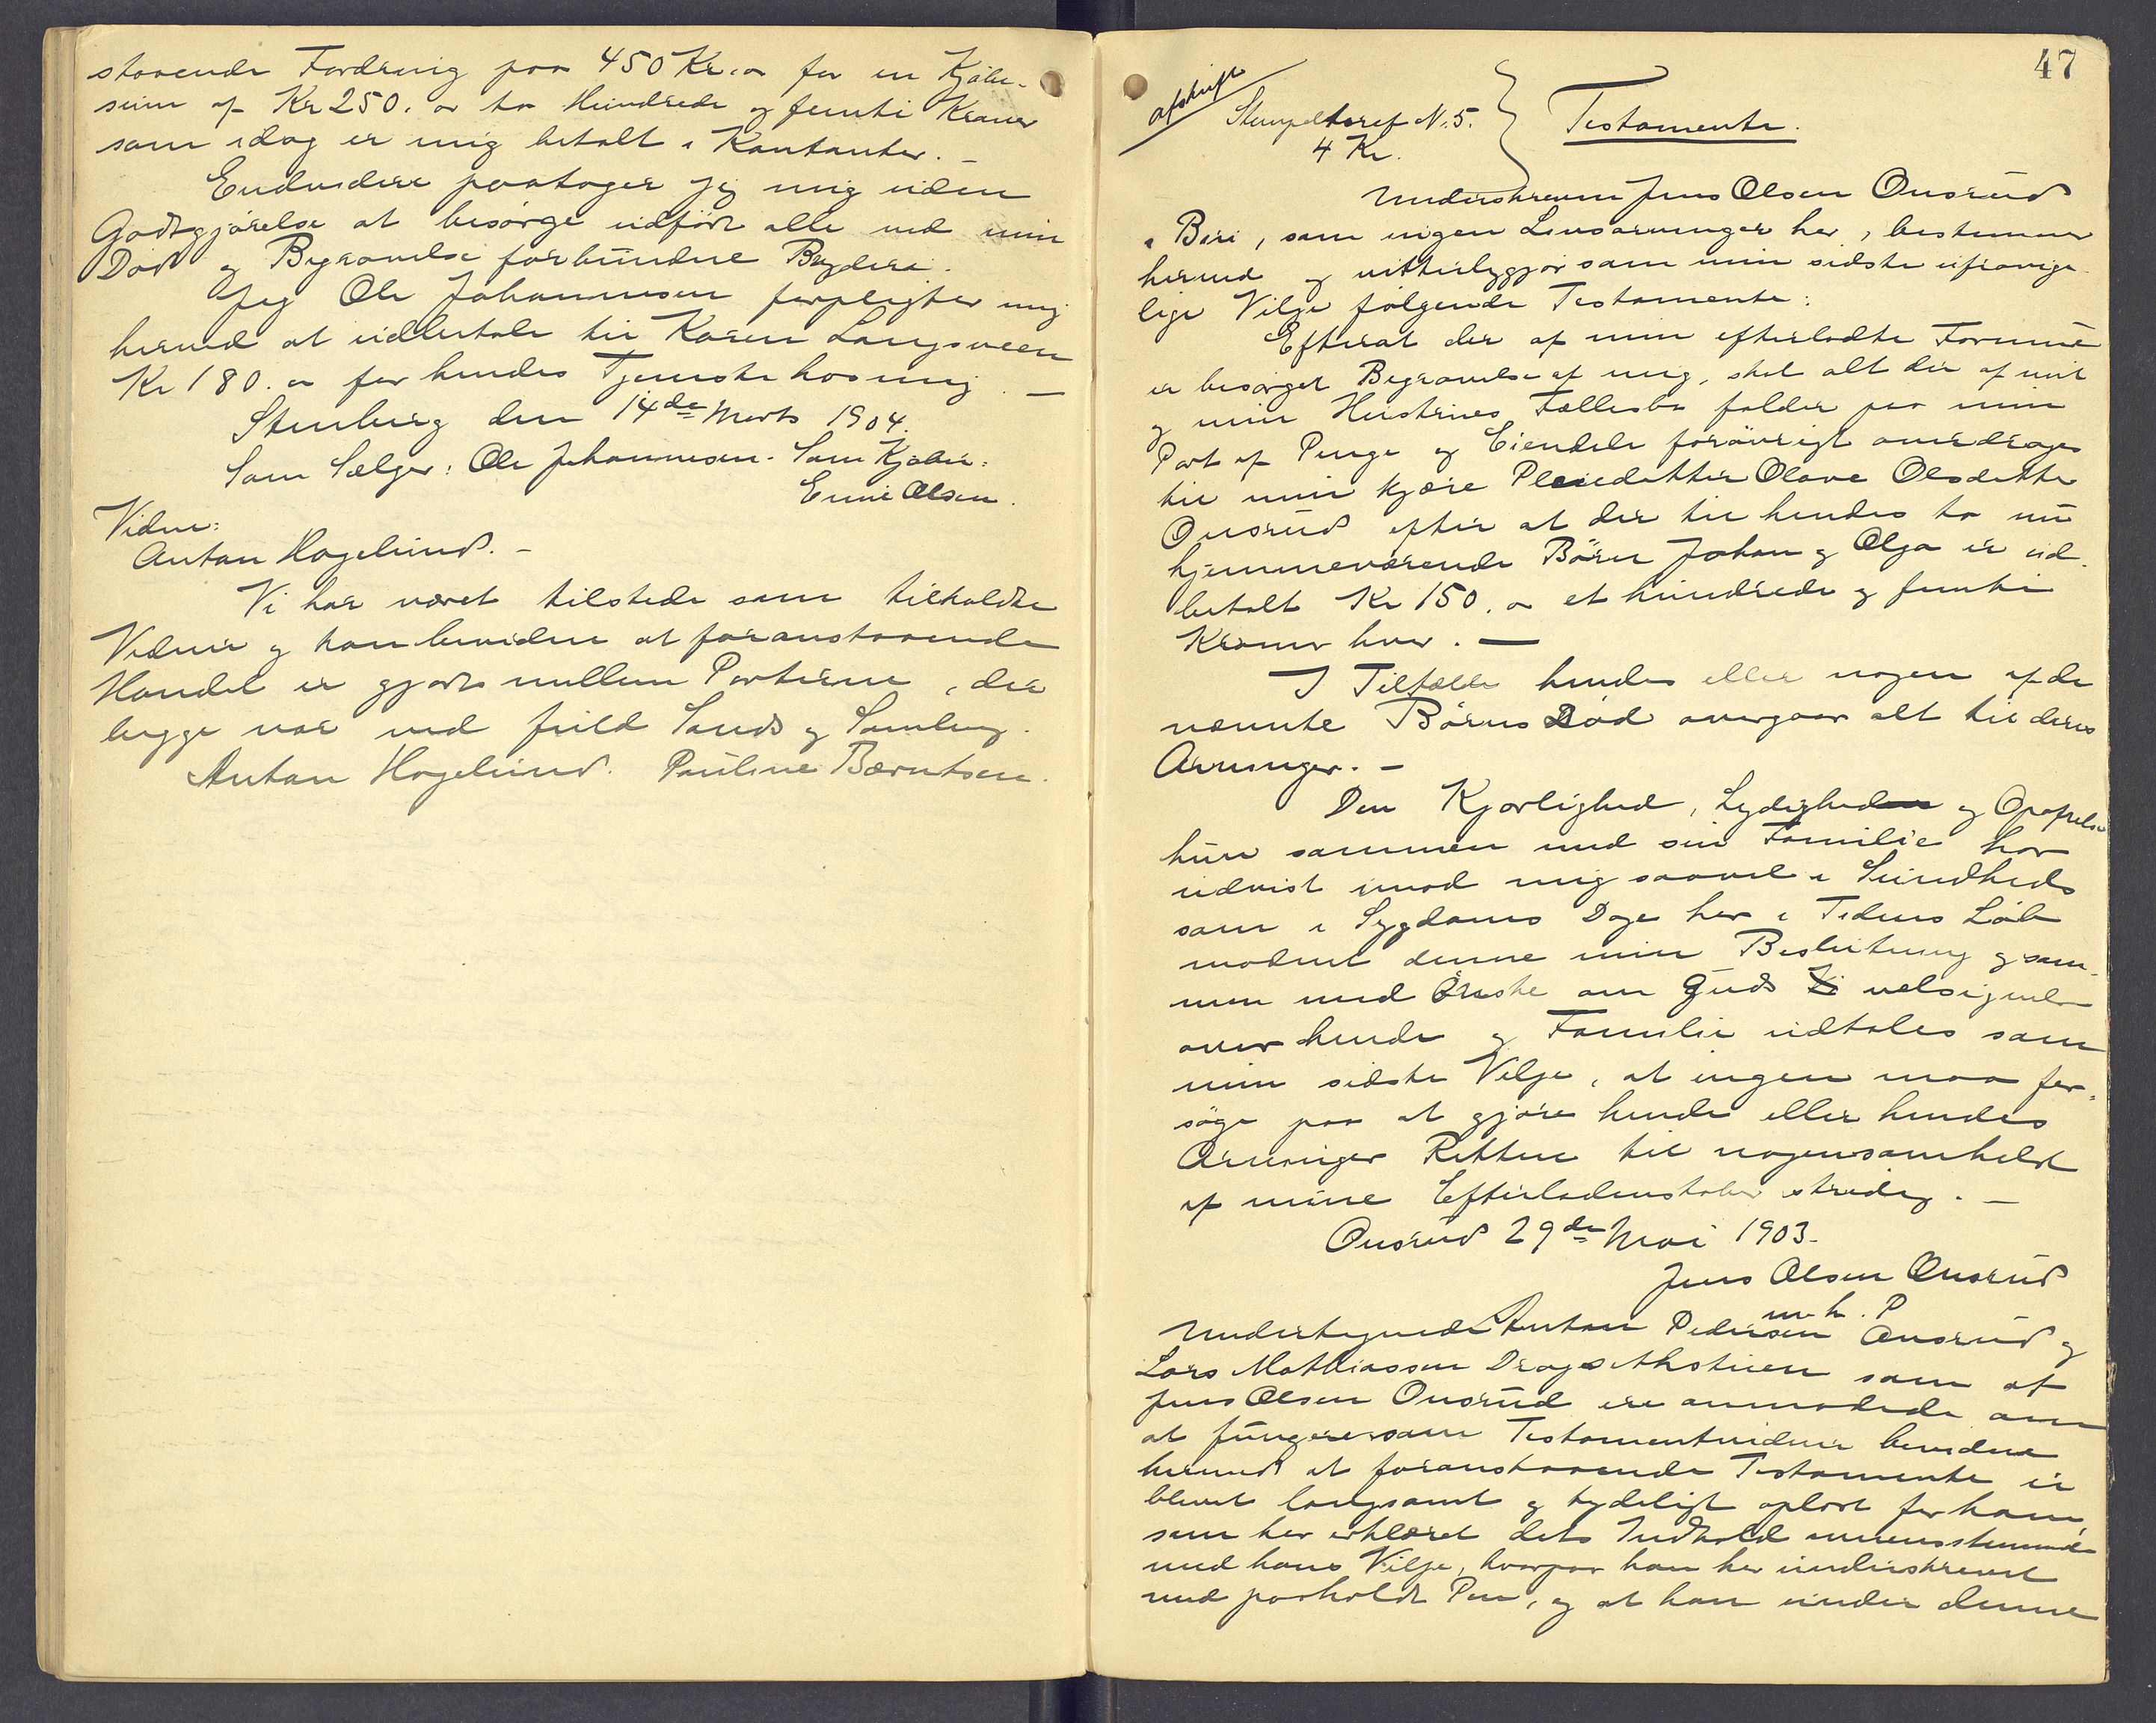 staaende Fordring paa 450 Kr. a for en Kjøbe-
sum af Kr 250. a to Hundrede og femti Kroner
som idag er mig betalt i Kontanter. –
Endvidere paatager jeg mig uden
Godtgjørelse at besørge udført alle ved min
Død og Begravelse forbundne Bryderi.
Jeg Ole Johannesen forpligter mig
herved at udbetale til Karen Langsveen
Kr 180. a for hendes Tjeneste hos mig. –
Stenberg den 14de Marts 1904.
Som Sælger: Ole Johannesen. Som Kjøber:
Enne Olsen.
Vidne:
Anton Hagelund. –
Vi har været tilstede som tilkaldte
Vidner og kan bevidne at foranstaaende
Handel er gjort mellem Parterne, der
begge var ved fuld Sands og Samling.
Anton Hagelund. Pauline Bærntsen.
47
afskrift
Stempeltaref N. 5.
4 Kr.
Testamente.
Underskrevne Jens Olsen Onsrud
i Biri, som ingen Livsarvinger har, bestemmer
herved og vitterliggjør som min sidste ufravige-
lige Vilje følgende Testamente:
Efterat der af min efterladte Formue
er besørget Begravelse af mig, skal alt der af mit
og min Hustrues Fællesbo falder paa min
Part af Penge og Eiendele forøvrigt overdrages
til min kjære Pleiedatter Olave Olsdatter
Onsrud efter at der til hendes to nu
hjemmeværende Børn Johan og Olga er ud-
betalt Kr 150. a et hundrede og femti
Kroner hver. –
I Tilfælde hendes eller nogen af de
nævnte Børns Død overgaar alt til deres
Arvinger. –
Den Kjærlighed, Lydighed og Opofrelse
hun sammen med sin Familie har
udvist imod mig saavel i Sundheds
som i Sygdoms Dage har i Tidens Løb
modnet denne min Beslutning og sam-
men med Ønske om Guds velsignelse
over hende og Familie udtales som
min sidste Vilje, at ingen maa for-
søge paa at gjøre hende eller hendes
Arvinger Retten til nogensomhelst
af mine Efterladenskaber stridig. –
Onsrud 29de Mai 1903.
Jens Olsen Onsrud
m. h. P
Undertegnede Anton Pedersen Onsrud og
Lars Mathiassen som af
Jens Olsen Onsrud ere anmodede om
at fungere som Testamentvidner bevidne
herved at foranstaaende Testamente er
blevet langsomt og tydeligt oplæst for ham,
som har erklæret dets Indhold overensstemmende
med hans Vilje, hvorpaa han har underskrevet
med paaholdt Pen, og at han under denne